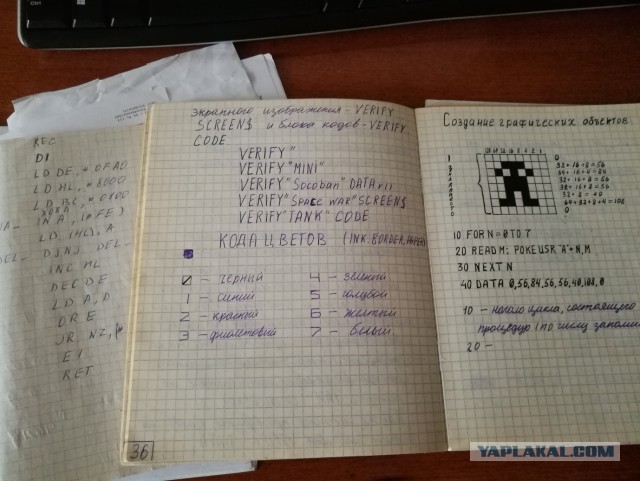 REC
DI
LD DE, #0FA0
LD HL, #8000
LD BC, #0100
IN A, (#FE)
LD (HL), A
DEL_ DJNZ DEL_
INC HL
DEC DE
LD A, D
OR E
JR NZ,
EI
RET
экранного изображения - VERIFY
SCREEN$ и блока кодов - VERIFY
CODE
VERIFY"
VERIFY"MINI"
VERIFY"Socoban" DATA
VERIFY"SPACE WAR"SCREEN$
VERIFY"TANK" CODE
КОДА ЦВЕТОВ (INK, BORDER, PAPER)
0 - черный 4 - зеленый
1 - синий 5 - голубой
2 - красный 6 - желтый
3 - фиолетовый 7 - белый
36
Создание графических объектов
0
32+16+8=56
64+16+4=84
32+16+8=56
32+16+8=56
32+8=40
64+32+8+4=108
0
10 FOR N=0 TO 7
20 READ M: POKE USR "A"+N,M
30 NEXT N
40 DATA 0,56,84,56,56,40,108,0
10 - начало цикла, состоящего
процедур (по числу
20 -
YAPLAKAL.COM